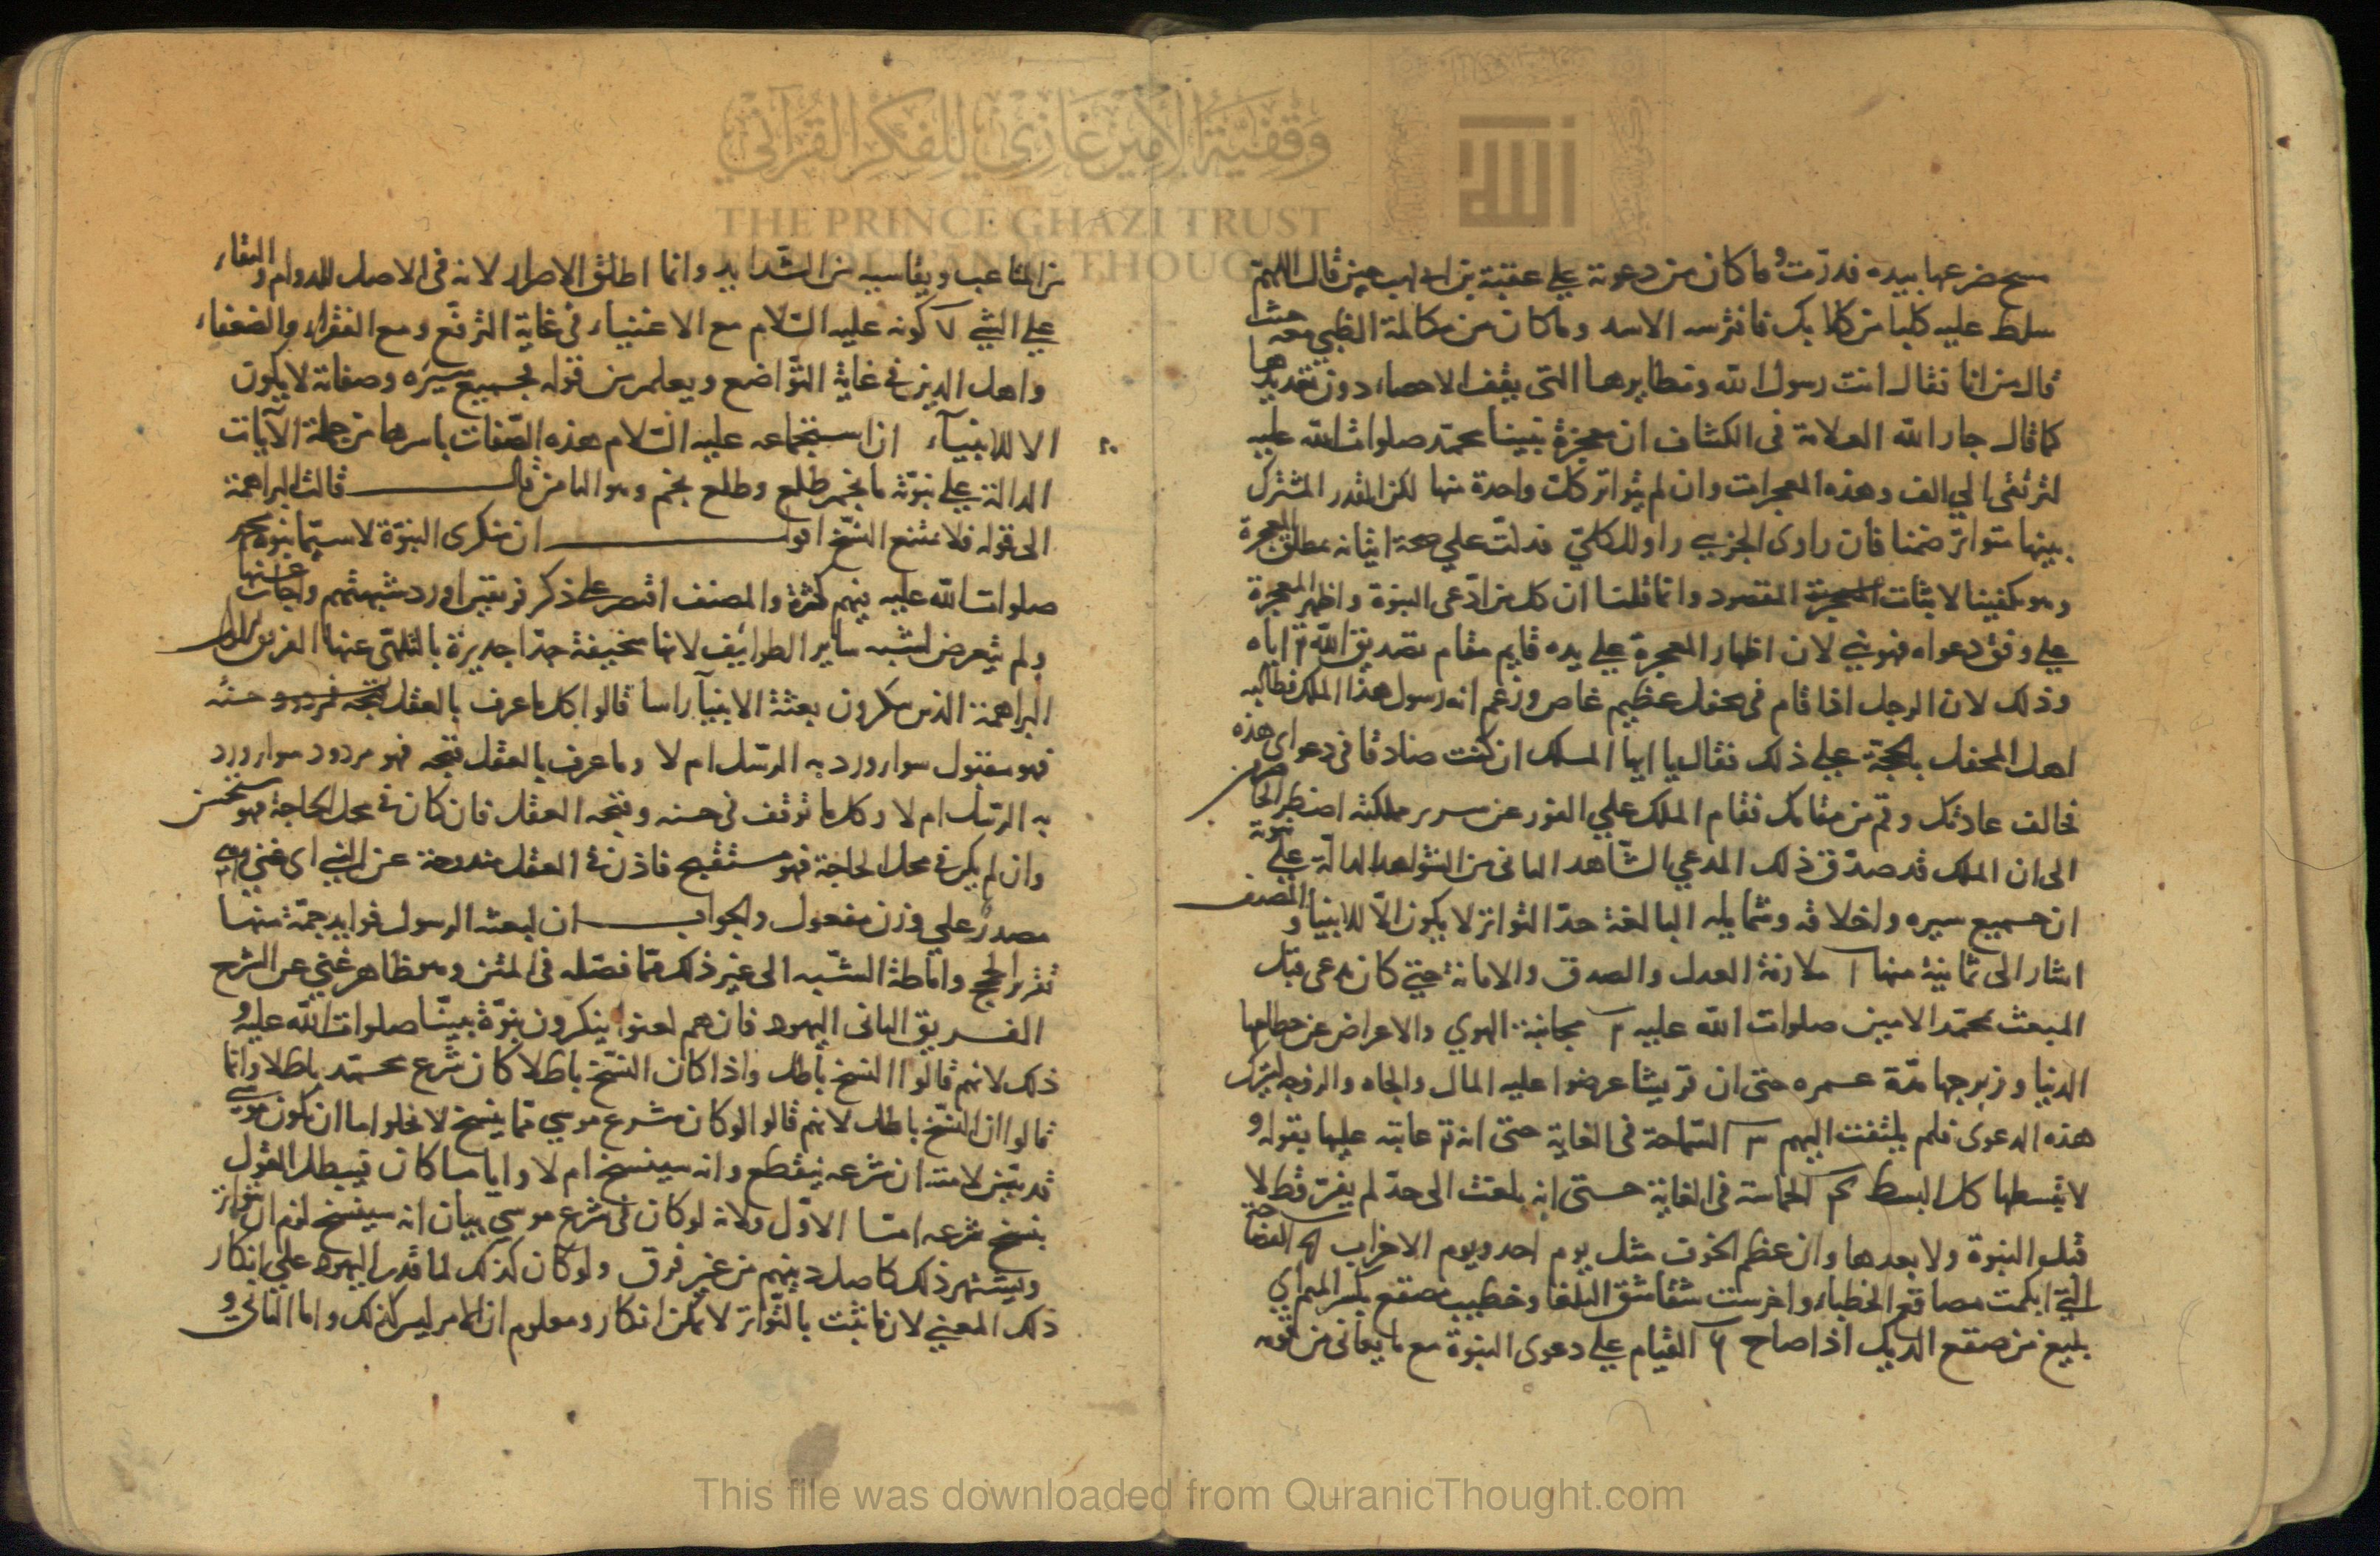 مسح ضرعها بيده فدرّت وما كان من دعوته علي عتبة بن ابي لهب حين قال اللهم
سلط عليه كلبا من كلابك فافترسه الاسد وما كان من مكالمة الظبي معه حيث
قال من انا فقال انت رسول الله ونظايرها التي يقف الاحصاء دون تعديدها
كما قال جار الله العلامة في الكشاف ان معجزة نبينا محمد صلوات الله عليه
لترتقى الي الف وهذه المعجزات وان لم يتواتر كلت واحدة منها لكن القدر المشترك
بينها متواتر ضمنا فان راوى الجزيي راو للكلي فدلت علي صحة اتيانه بمطلق المعجزة
وهو يكفينا لاثبات المقصود وانما قلنا ان كل من ادّعى النبوة واظهر المعجزة
علي وفق دعواه فهو نبي لان اظهار المعجزة علي يده قايم مقام تصديق الله تع اياه
وذلك لان الرجل اذا قام في محفل عظيم غاص وزعم انه رسول هذا الملك فطالبه
اهل المحفل بالحجة علي ذلك فقال يا ايها الملك ان كنت صادقا في دعواى هذه
فخالف عادتك وقم من مقامك فقام الملك علي الفور عن سرير مملكته اضطر الحاضرين
الى ان الملك قد صدّق ذلك المدعي الشاهد الثاني من الشواهد الدالة علي نبوته
ان جميع سيره واخلاقه وشمايله البالغة حدّ التواتر لا يكون الّا للانبيا والمصنف
اشار الى ثمانية منها ا ملازمة العدل والصدق والامانة حتي كان يدعى قبل
المبعث محمّد الامين صلوات الله عليه ٢ مجانبة الهوي والاعراض عن حطامها
الدنيا وزبرجها مدّة عمره حتى ان قريشا عرضوا عليه المال والجاه والزوجة لترك
هذه الدعوى فلم يلتفت اليهم ٣ السّماحة في الغاية حتى انه تع عاتبه عليها بقوله و
لا تبسطها كل البسط ٤ الحماسة في الغاية حتى انه بلغت الى حدّ لم يفر قط لا
قبل النبوة ولا بعدها وان عظم الخوف مثل يوم احد ويوم الاحزاب ٥ الفصاحة
التي ابكمت مصاقع الخطباء واخرست شقاشق البلغا وخطيب مصقع بكسر الميم اي
بليغ من صقع الديك اذا صاح ٦ القيام علي دعوى النبوة مع ما يعانى من قومه
من المتاعب ويقاسيه من الشدايد وانما اطلق الاصرار لانه في الاصل للدوام والبقاء
علي الشي ٧ كونه عليه السّلام مع الاغنياء في غاية الترفّع ومع الفقراء والضعفاء
واهل الدين في غاية التّواضع ويعلم من قوله بجميع سيره وصفاته لا يكون
الا للانبياء ان استجماعه عليه السّلام هذه الصّفات باسرها من جملة الآيات
الدالة علي نبوّته ما نجم طلع وطلع نجم وهو الثامن قال قالت البراهمة
الى قوله فلا يمتنع النسّخ اقول ان منكرى النبوّة لا سيّما نبوة محمد
صلوات الله عليه فيهم كثرة والمصنف اقتصر على ذكر فريقين اورد شبهتهم واجاب عنها
ولم يتعرض لشبه ساير الطوايف لانها سخيفة جدّا جديرة بالتلهّى عنها الفريق الاول
البراهمة الذين ينكرون بعثة الانبيآ راسا قالوا كل ما عرف بالعقل حسنه
فهو مقبول سوا ورد به الرسل ام لا وما عرف بالعقل قبحه فهو مردود سوا ورد
به الرسل ام لا وكل ما توقف في حسنه وقبحه العقل فان كان في محل الحاجة فهو مستحسن
وان لم يكن في محل الحاجة فهو مستقبح فاذن في العقل مندوحة عن النبي اى غنى وهو
مصدر علي وزن مفعول والجواب ان لبعثه الرسول فوايد جمّة منها
تقرير الحجج واماطة الشّبه الى غير ذلك ممّا فصّله في المتن وهو ظاهر غني عن الشرح
الفريق الثاني اليهود فانهم لعنوا ينكرون نبوّة نبيّنا صلوات الله عليه و
ذلك لانهم قالوا النسخ باطل واذا كان النسّخ باطلا كان شرع محمّد باطلا وانما
قالوا ان النسّخ باطل لانهم قالوا لو كان شرع موسي مما ينسخ لا يخلوا اما ان يكون موسي
قد بيّن لامته ان شرعه ينقطع وانه سينسخ ام لا وايا ما كان فيبطل القول
بنسخ شرعه امّا الاوّل فلانه لو كان في شرع موسي بيان انه سينسخ لزم ان يتواتر
ويشتهر ذلك كاصل دينهم من غير فرق ولو كان كذلك لما قدر اليهود علي انكار
ذلك المعني لان ما ثبت بالتّواتر لا يمكن انكاره ومعلوم ان الامر ليس كذلك واما الثاني و
وقفية الأمير غازي للفكر القرآني
THE PRINCE GHAZI TRUST
FOR QURANIC THOUGHT
This file was downloaded from QuranicThought.com